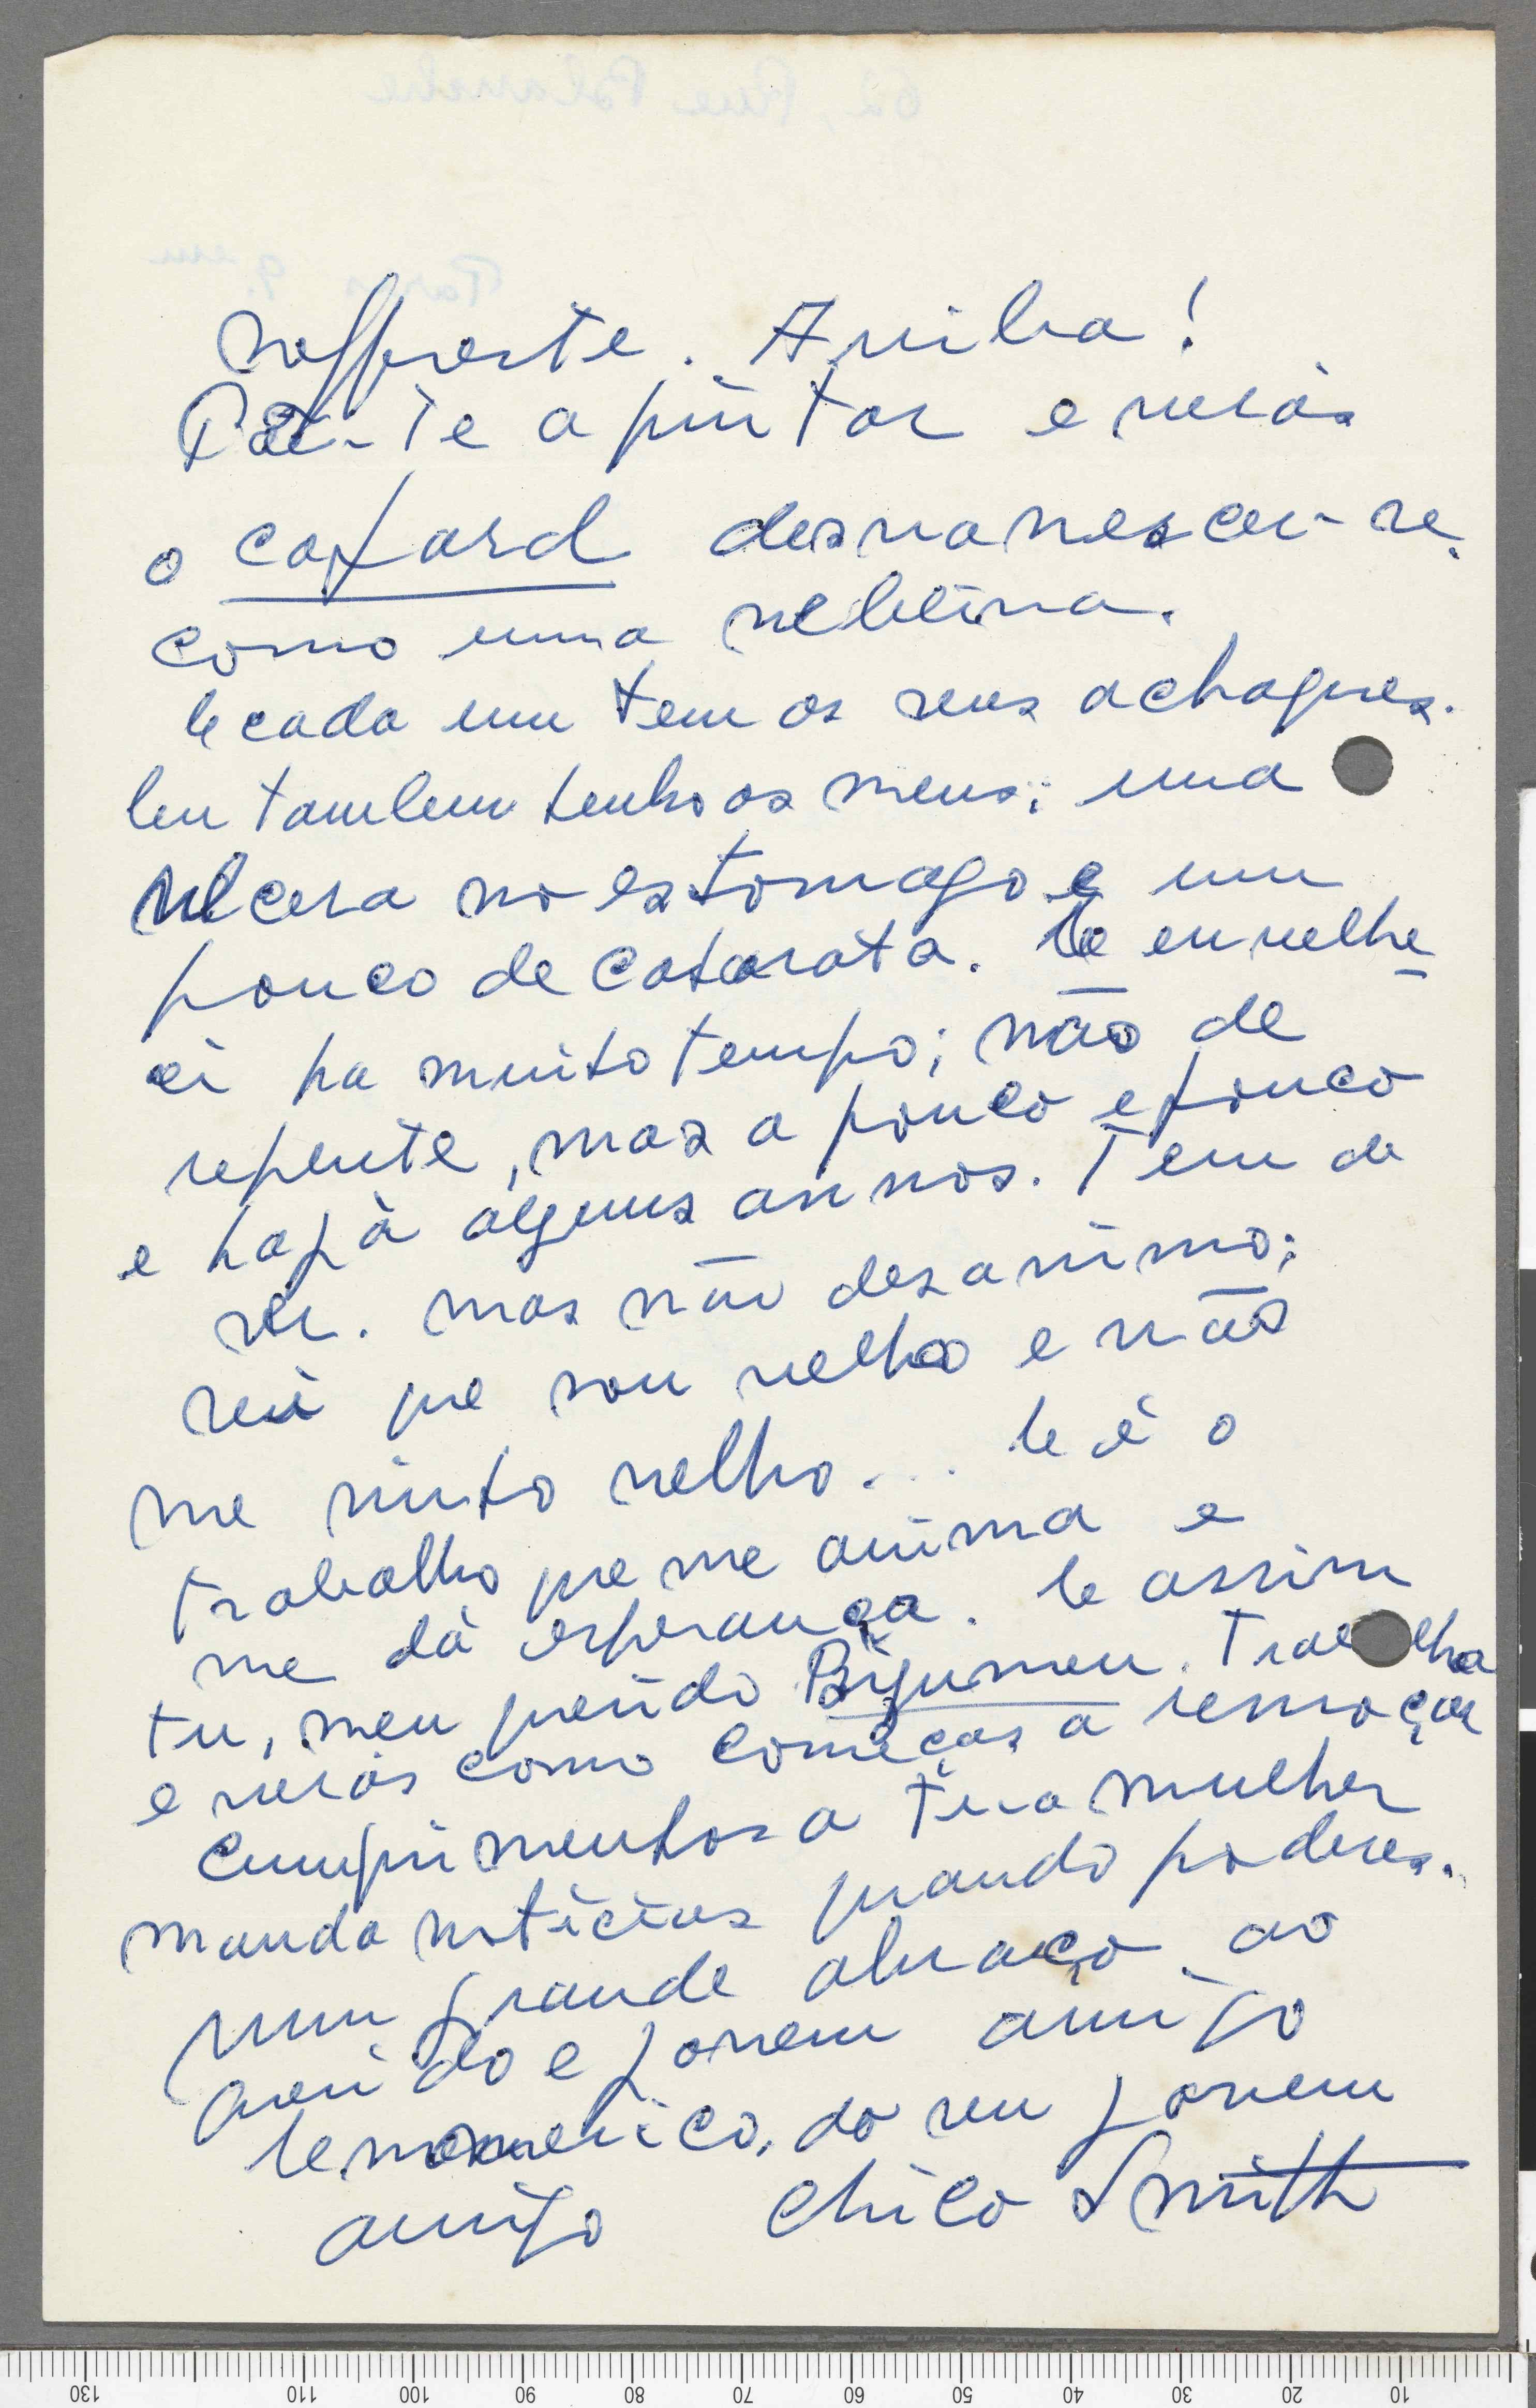 soffreste. Arriba!
Põe-te a pintar e verás
o cafard desvanescer-se
como uma neblina.
E cada um tem os seus achaques.
Eu tambem tenho os meus: uma
ulcera no estomago e um
pouco de catarata. E envelhe
ci ha muito tempo; não de
repente, mas a pouco e pouco
e ha já alguns annos. Tem de
ser. mas não desanimo;
sei que sou velho e não
me sinto velho... E é o
trabalho que me anima e
me dá esperança. E assim
tu, meu querido Bijumeu. Trabalha
e verás como começas a remoçar
Cumprimentos a tua mulher
manda noticias quando poderes.
num grande abraço ao
querido e jovem amigo
do seu jovem
amigo Chico Smith